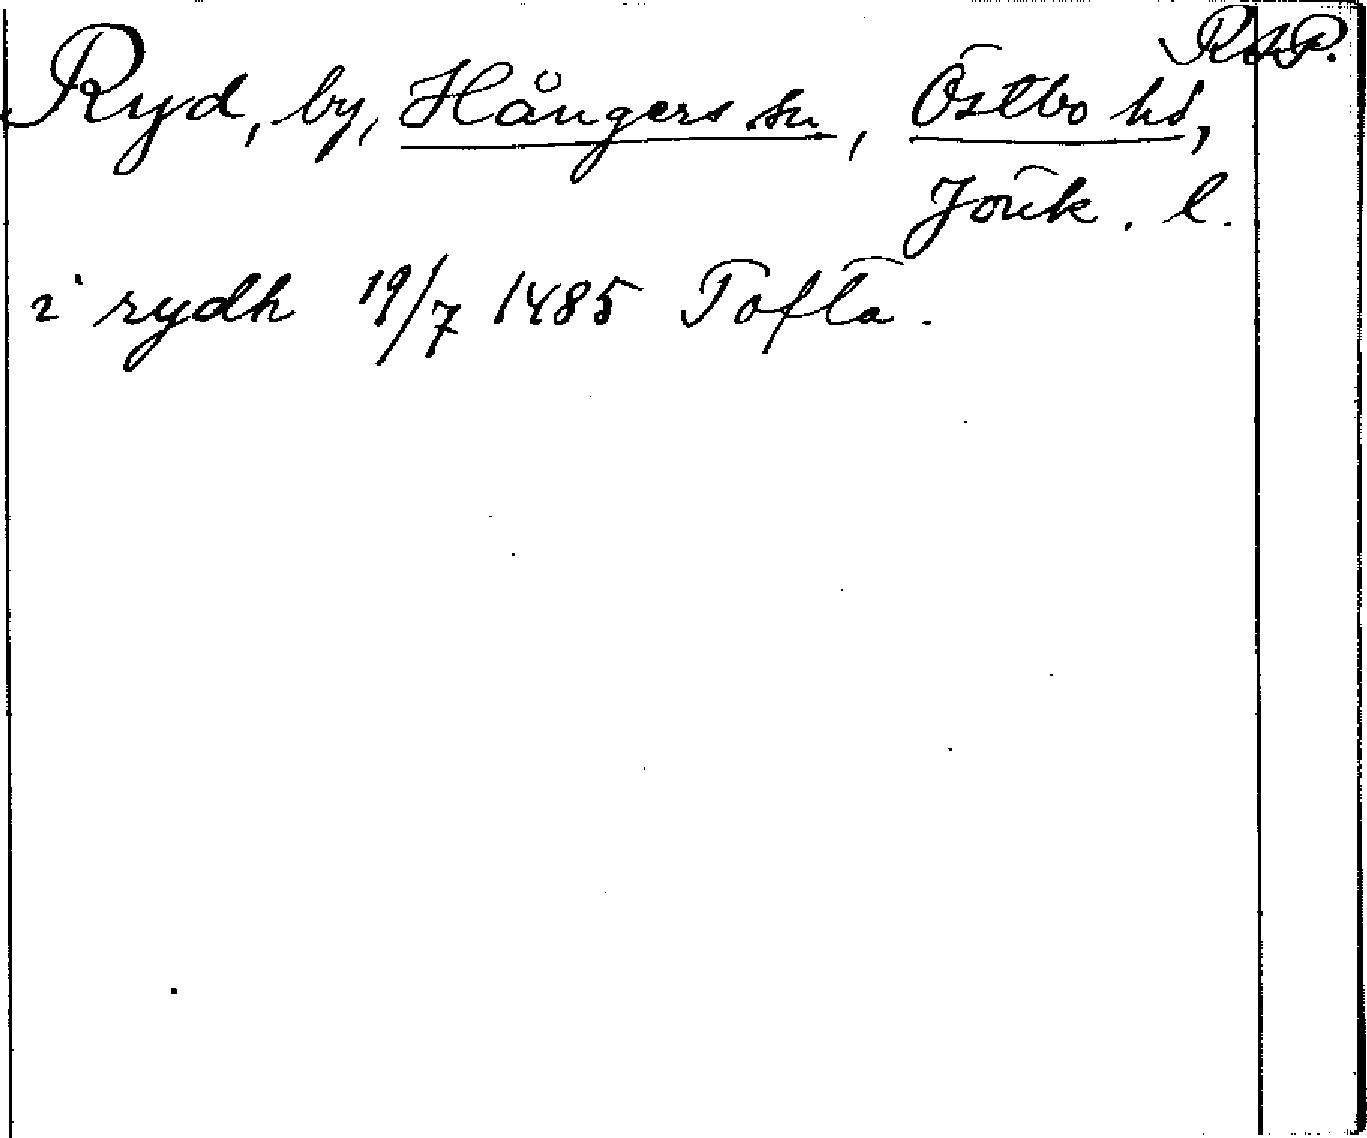 RAP.
Ryd, by, Hångers sn, Östbo hd,
Jönk. l.
i rydh 19/7 1485 Tofta.